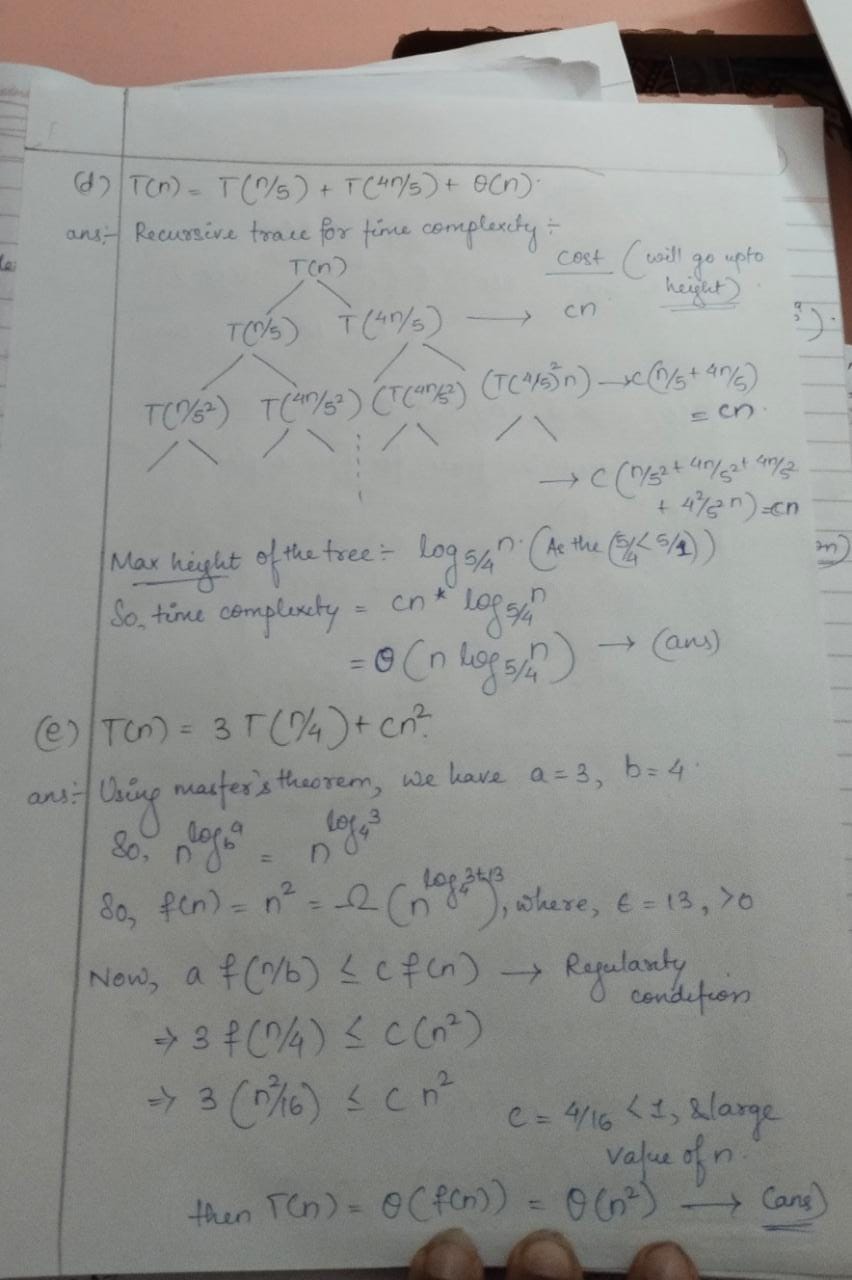 (d) T(n) = T(n/5) + T(4n/5) + θ(n).
ans:- Recursive trace for time complexity :-
T(n)
cost (will go upto
height)
T(n/5) T(4n/5) → cn
T(n/5²) T(4n/5²) (T(4n/5²) (T(4/5)²n) → c(n/5 + 4n/5)
= cn.
→ c(n/5² + 4n/5² + 4n/5²
+ 4²/5² n) = cn
Max height of the tree :- log 5/4 n. (As the (5/4 < 5/1))
So, time complexity = cn * log 5/4 n
= θ(n log 5/4 n) → (ans)
(e) T(n) = 3T(n/4) + cn².
ans:- Using master's theorem, we have a = 3, b = 4.
So, n^log_b a = n^log_4 3
So, f(n) = n² = Ω(n^log_4 3+13), where, ϵ = 13, >0
Now, a f(n/b) ≤ c f(n) → Regularity
condition
⇒ 3 f(n/4) ≤ c(n²)
⇒ 3(n²/16) ≤ cn²
c = 4/16 < 1, & large
value of n.
then T(n) = θ(f(n)) = θ(n²) → (ans)